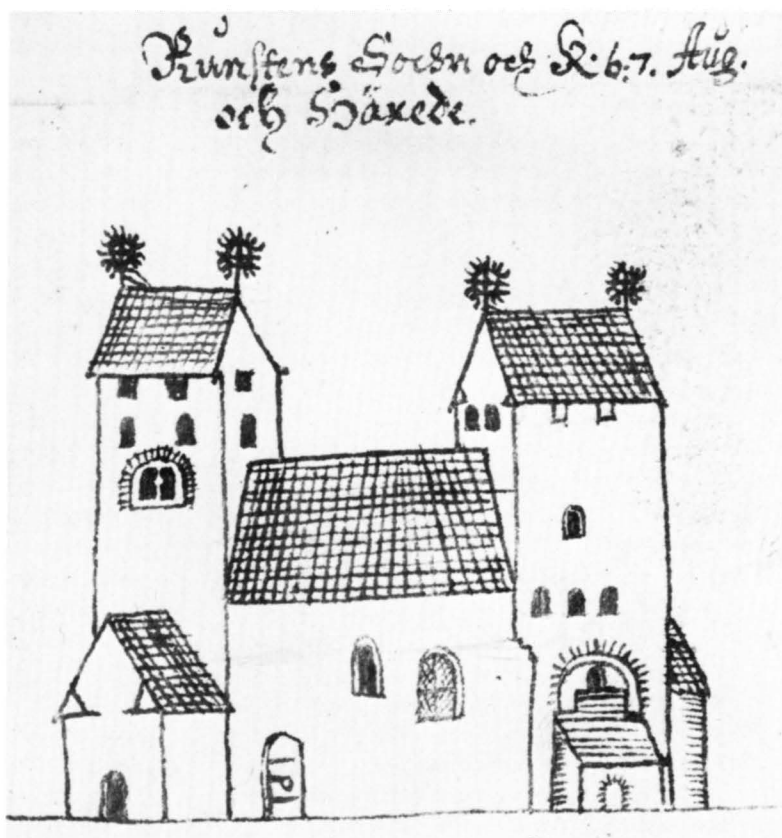 Runstens Sochn och K: 6.7. Aug.
och Härede.